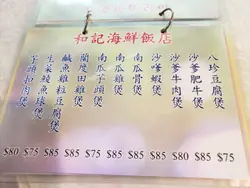 和記海鮮飯店
八珍豆腐煲
沙爹肥牛煲
沙爹牛肉煲
沙嗲蝦煲
南瓜骨煲
南瓜雞煲
南瓜芋頭煲
蘭度田雞煲
鹹魚雞粒豆腐煲
生菜鯪魚球煲
芋頭扣肉煲
$80 $75 $85 $85 $75 $85 $85 $85 $80 $85 $75